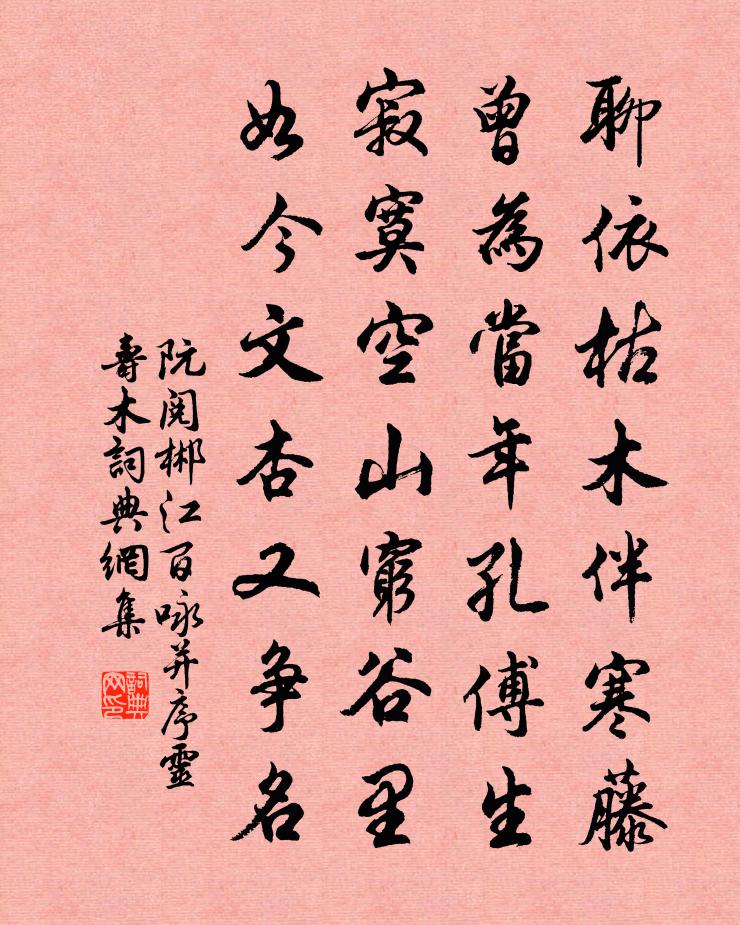 聊依枯木伴寒藤
曾為當年孔傅生
寂寞空山窮谷里
如今文杏又争名
阮閱郴江百咏并序靈
壽木詞典網集
詞典網印